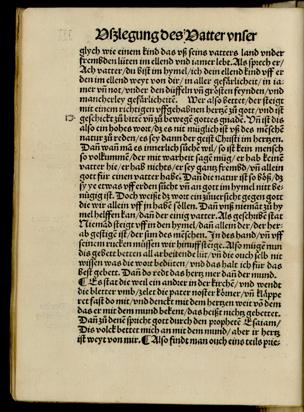 Vßlegung des Vatter vnser
glych wie einem kind das vß seins vatters land vnder
frembden lüten im ellend vnd iamer lebt. Als sprech er/
Ach vatter/ du bist im hymel/ ich dein ellend kind vff er
den im ellend weyt von dir/ in aller geferlicheit/ in ia-
mer vñ not/ vnder den düffeln vñ grösten feynden/ vnd
mancherley geferlicheitē. Wer also bettet/ der steiget
mit einem richtigen vffgehabnen hertz zů got/ vnd ist
geschickt zů bittē vñ zů bewegē gottes gnadē. Vñ ist dis
also ein hohes wort/ dz es nit müglich ist vß des mēschē
natur zů reden/ es sey dann der geist Christi im hertzen.
Dañ wañ mā es innerlich sůchē wil/ so ist kein mensch
so volkummē/ der mit warheit sagē müg/ er hab keinē
vatter hie/ er hab nichts/ er sey gantz frembd/ vñ allein
gott für einen vatter habe. Dañ die natur ist so böß/ dz
sy ye etwas vff erden sůcht vñ an gott im hymel nitt be-
nügig ist. Doch weißt dz wort ein zůuersicht gegen gott
die wir allein vff in habē sollen. Dañ vnß niemāt zů hy
mel helffen kan/ dañ der einig vatter. Als geschribē stat
Niemād steigt vff in den hymel/ dañ allein der/ der her-
ab gestigē ist/ der sun des mēschen. In des hand/ vñ vff
seinem rucken müssen wir hinuff steige. Also mügē nun
dis gebett betten all arbeitende lüt/ vñ die ouch selb nit
wissen was die wort bedüten/ vnd das halt ich für das
best gebett. Dañ do redt das hertz mer dañ der mund.
¶ Es stat die weil ein ander in der kirchē/ vnd wendt
die bletter vmb/ zelet die pater noster körner/ vñ klappe
ret fast do mit/ vnd denckt mit dem hertzen weit vō dem
das er mit dem mund bekent/ das heißt nichtz gebettet.
Dañ zů denē spricht gott durch den prophetē Esaiam/
Dis volck bettet mich an mit dem mund/ aber ir hertz
ist weyt von mir. ¶ Also findt man ouch eins teils prie-